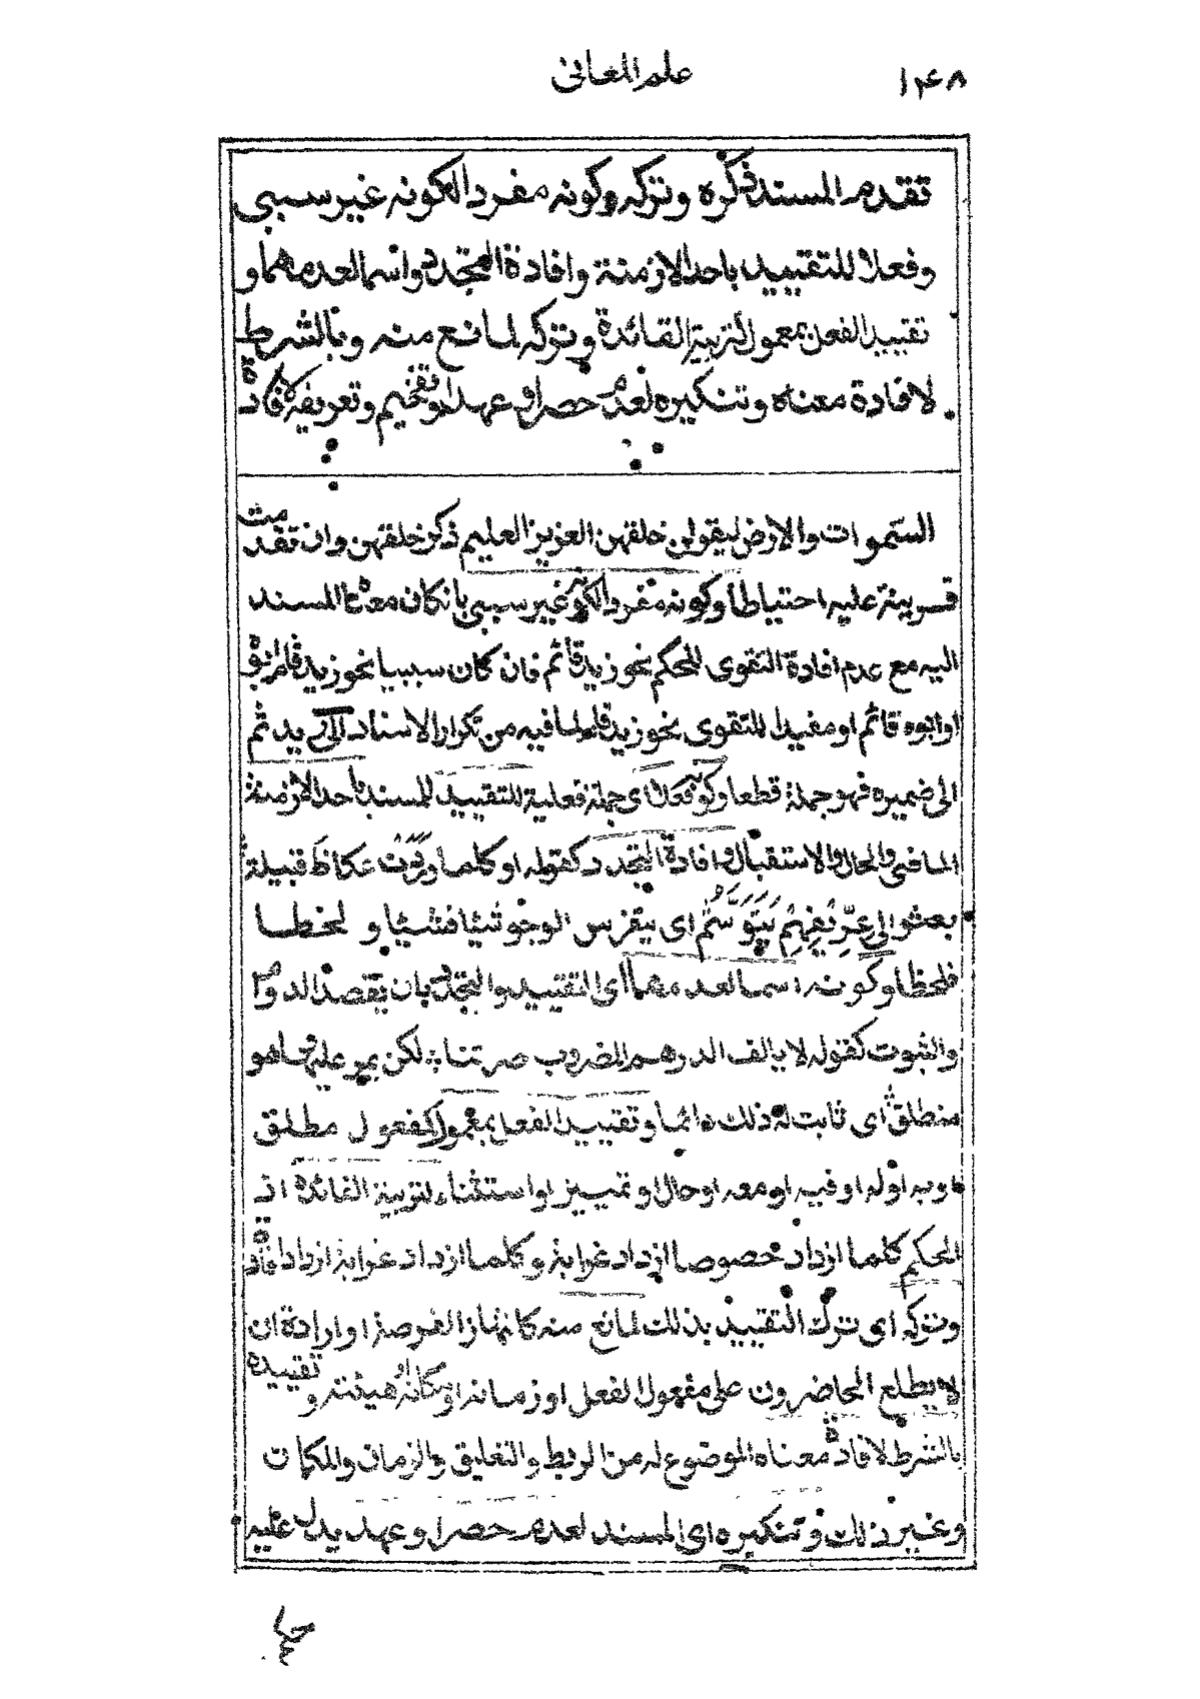 ١٤٨
علم المعانى
تقدم المسند ذكره وتركه وكونه مفردا لكونه غير سببي
وفعلا للتقييد باحد الازمنة وافادة التجدد واسما لعدمهما و
تقييد الفعل بمعمول لتربية الفائدة وتركه لمانع منه وبالشرط
لافادة معناه وتنكيره لعدم حصر او عهد او تفخيم وتعريفه لافادة
السموات والارض ليقولن خلقهن العزيز العليم ذكر خلقهن وان تقدمت
قرينة عليه احتياطا وكونه مفردا لكونه غير سببي بان كان معناه المسند
اليه مع عدم افادة التقوى للحكم نحو زيد قائم فان كان سببيا نحو زيد قام ابوه
او ابوه قائم او مفيدا للتقوى نحو زيد قام لما فيه من تكرار الاسناد الى زيد ثم
الى ضميره فهو جملة قطعا وكونه فعلا اى جملة فعلية للتقييد للمسند باحد الازمنة
الماضى والحال والاستقبال وافادة التجدد كقوله او كلما وردت عكاظ قبيلة
بعثوا الى عريفهم يتوسم اى يتفرس الوجوه شيئا فشيئا و لحظا
فلحظا وكونه اسما لعدمهما اى التقييد والتجدد بان يقصد الدوام
والثبوت كقوله لا يالف الدرهم المضروب صرتنا لكن يمر عليها وهو
منطلق اى ثابت له ذلك دائما وتقييد الفعل بمعمول كمفعول مطلق
او به او له او فيه او معه او حال او تمييز او استثناء لتربية الفائدة اذ
الحكم كلما ازداد خصوصا ازداد غرابة وكلما ازداد غرابة ازداد افادة
وتركه اى ترك التقييد بذلك لمانع منه كانتهاز الفرصة او ارادة ان
لا يطلع الحاضرون على مفعول الفعل او زمانه او مكانه او هيئته وتقييده
بالشرط لافادة معناه الموضوع له من الربط والتعليق والزمان والمكان
وغير ذلك وتنكيره اى المسند لعدم حصر او عهد يدل عليه